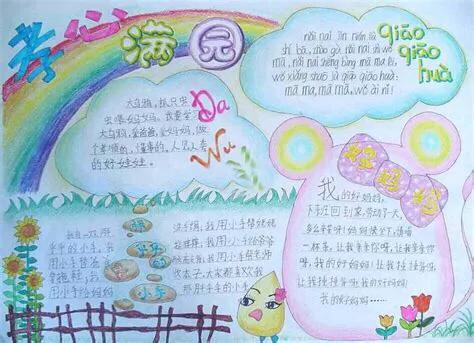 孝心满园
大乌鸦，捉只虫
虫喂妈妈。我要学习
大乌鸦，爱爸爸，爱妈妈，做
个孝顺的、懂事的、人见人爱
的好娃娃。
Da
Wu
qiāo
qiāo
huà
nǎi nai jīn nián liù
shí bā
mā, nǎi nai shēng bìng mā ma lèi,
wǒ xiǎng shuō jù qiāo qiāo huà:
mā ma, mā mā, wǒ ài nǐ!
好妈妈
我的好妈妈，
下班回到家，劳动了一天，
多么辛苦呀！妈妈妈妈快坐下，请喝
一杯茶，让我亲亲你呀，让我亲亲你
呀，我的好妈妈，让我捶捶背呀，
让我捶捶背呀，我的好妈妈！
我的好妈妈……
我有一双胖
乎乎的小手，
我用小手替爸爸
拿拖鞋，
用小手给妈妈
洗手绢，我用小手帮姥姥
我用小手给爷爷
我用小手帮老师
大家都喜欢我
胖乎乎的小手
小手